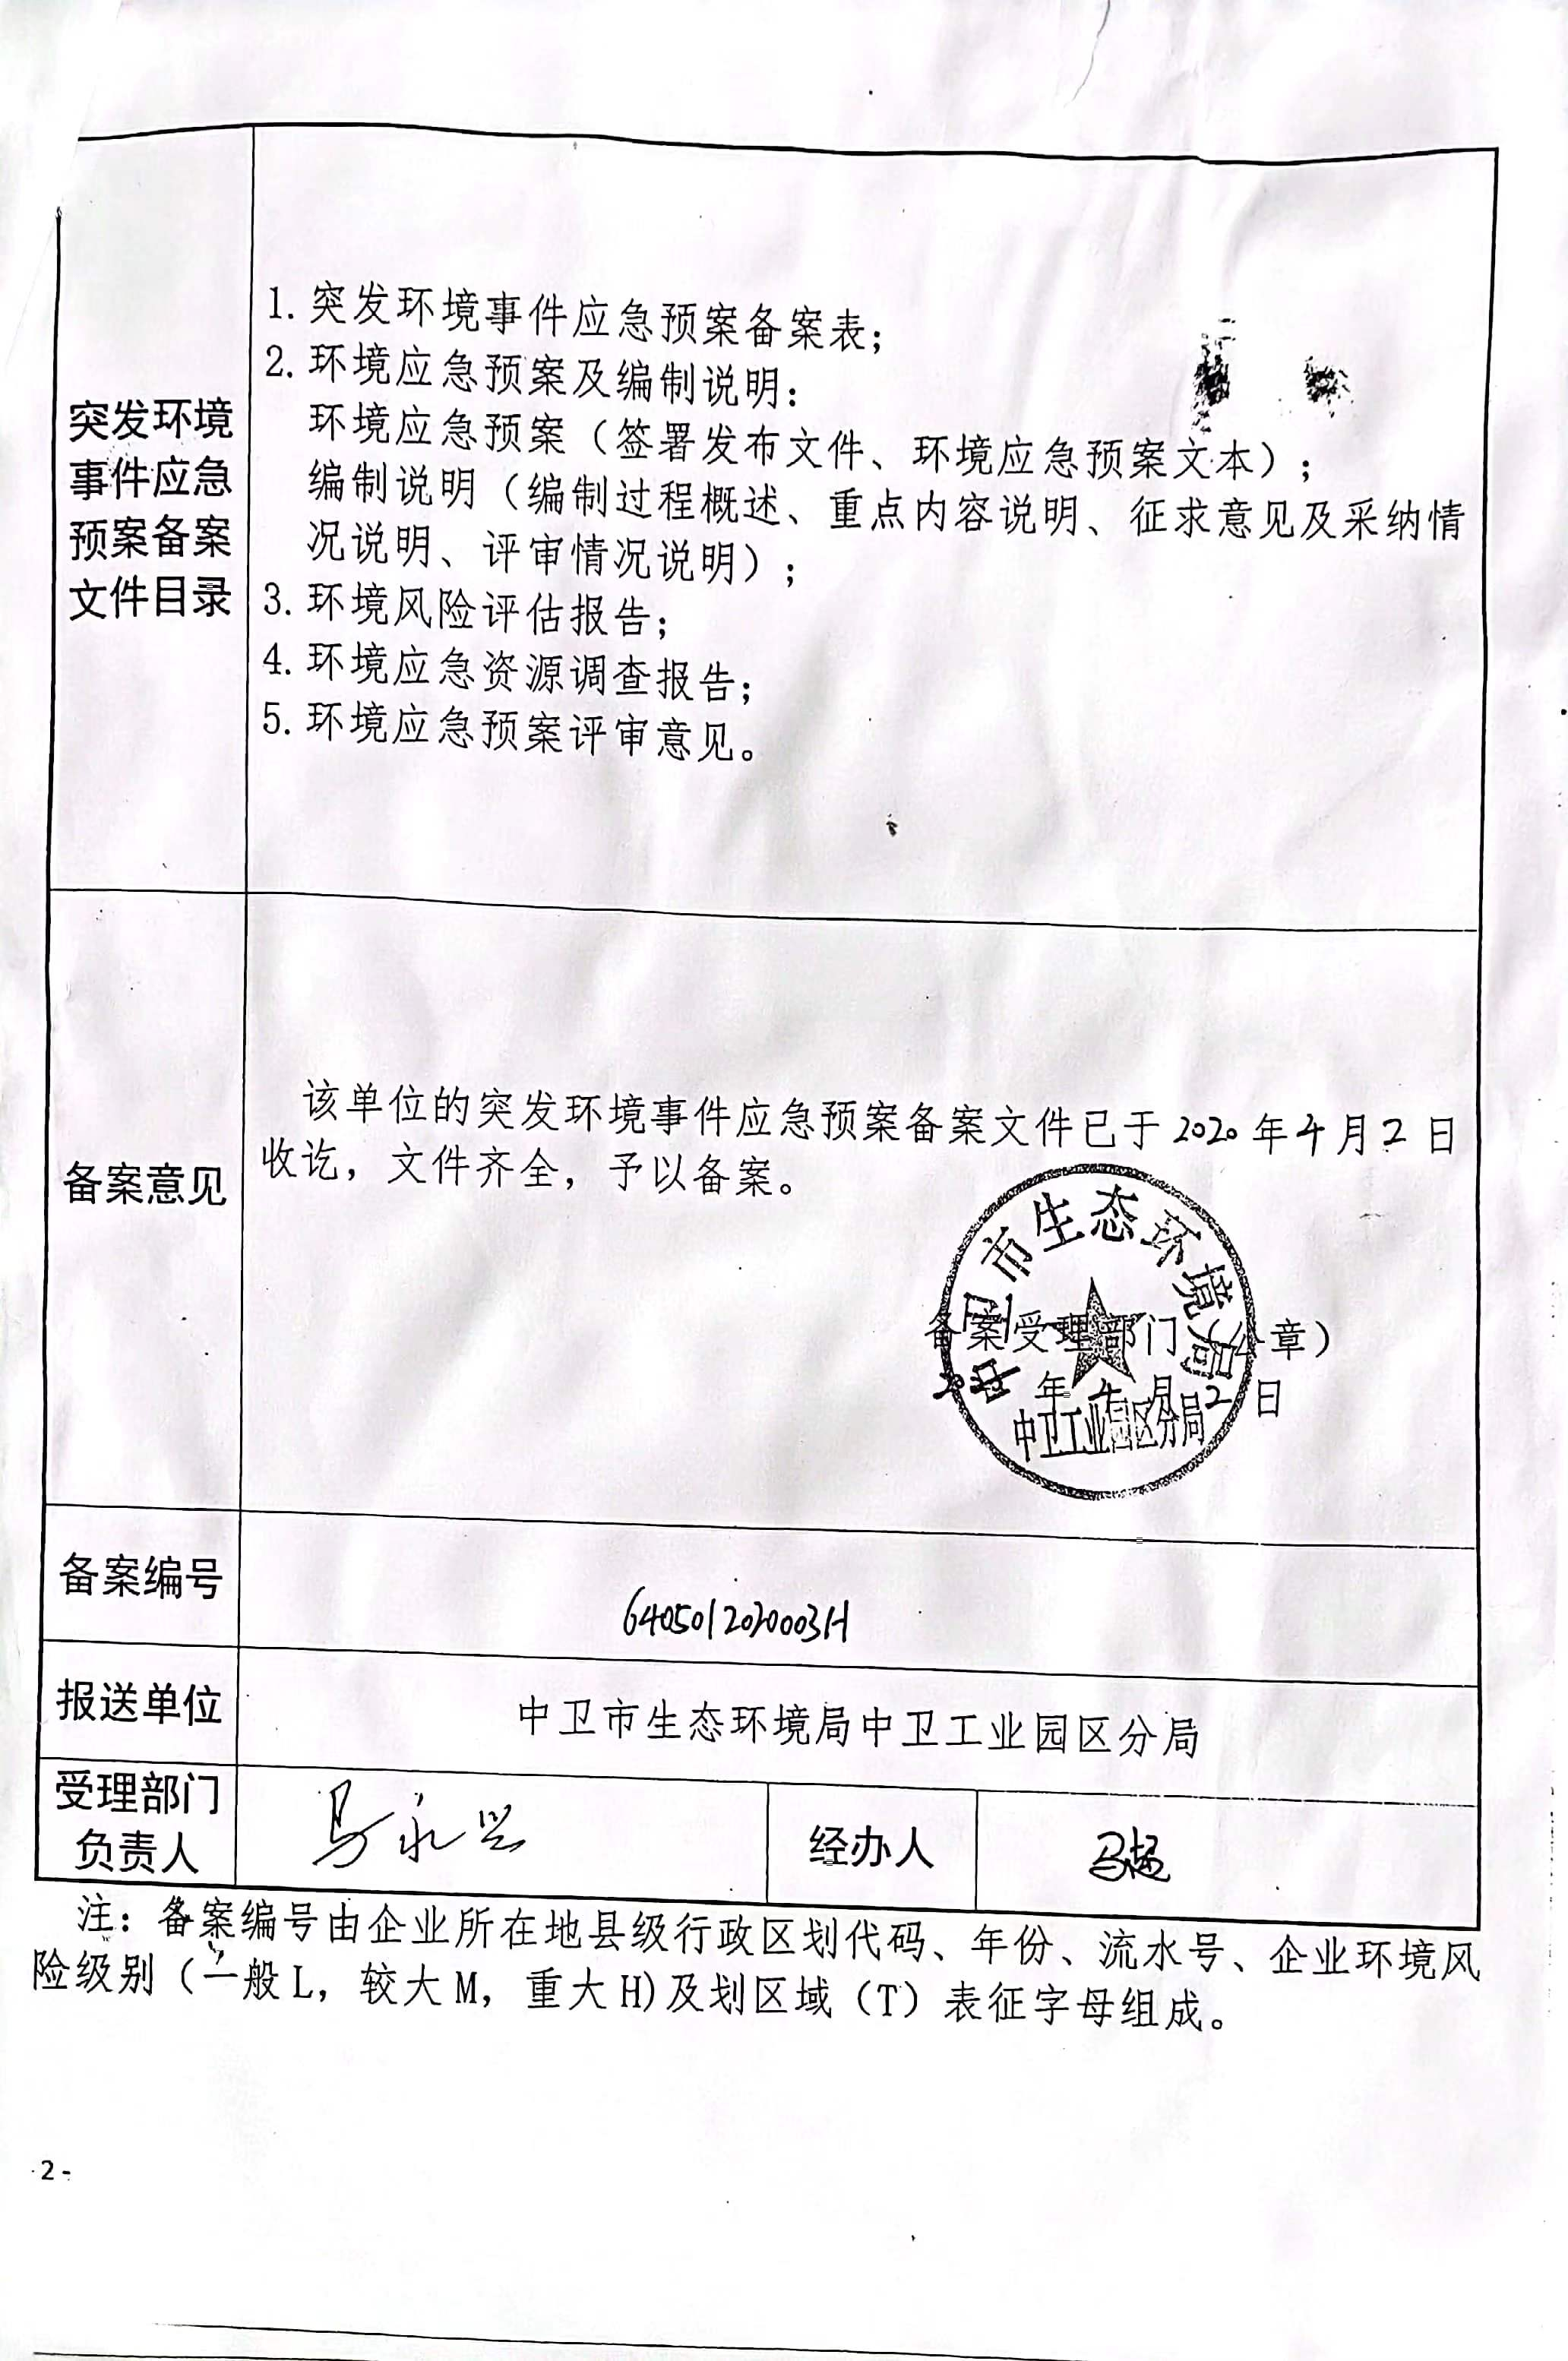 突发环境
事件应急
预案备案
文件目录
1. 突发环境事件应急预案备案表；
2. 环境应急预案及编制说明：
环境应急预案（签署发布文件、环境应急预案文本）；
编制说明（编制过程概述、重点内容说明、征求意见及采纳情
况说明、评审情况说明）；
3. 环境风险评估报告；
4. 环境应急资源调查报告；
5. 环境应急预案评审意见。
备案意见
该单位的突发环境事件应急预案备案文件已于2020年4月2日
收讫，文件齐全，予以备案。
中卫市生态环境局
备案受理部门（公章）
年4月2日
中卫工业园区分局
备案编号
6405012020003H
报送单位
中卫市生态环境局中卫工业园区分局
受理部门
负责人
马永兴
经办人
马超
注：备案编号由企业所在地县级行政区划代码、年份、流水号、企业环境风
险级别（一般L，较大M，重大H)及划区域（T）表征字母组成。
2-